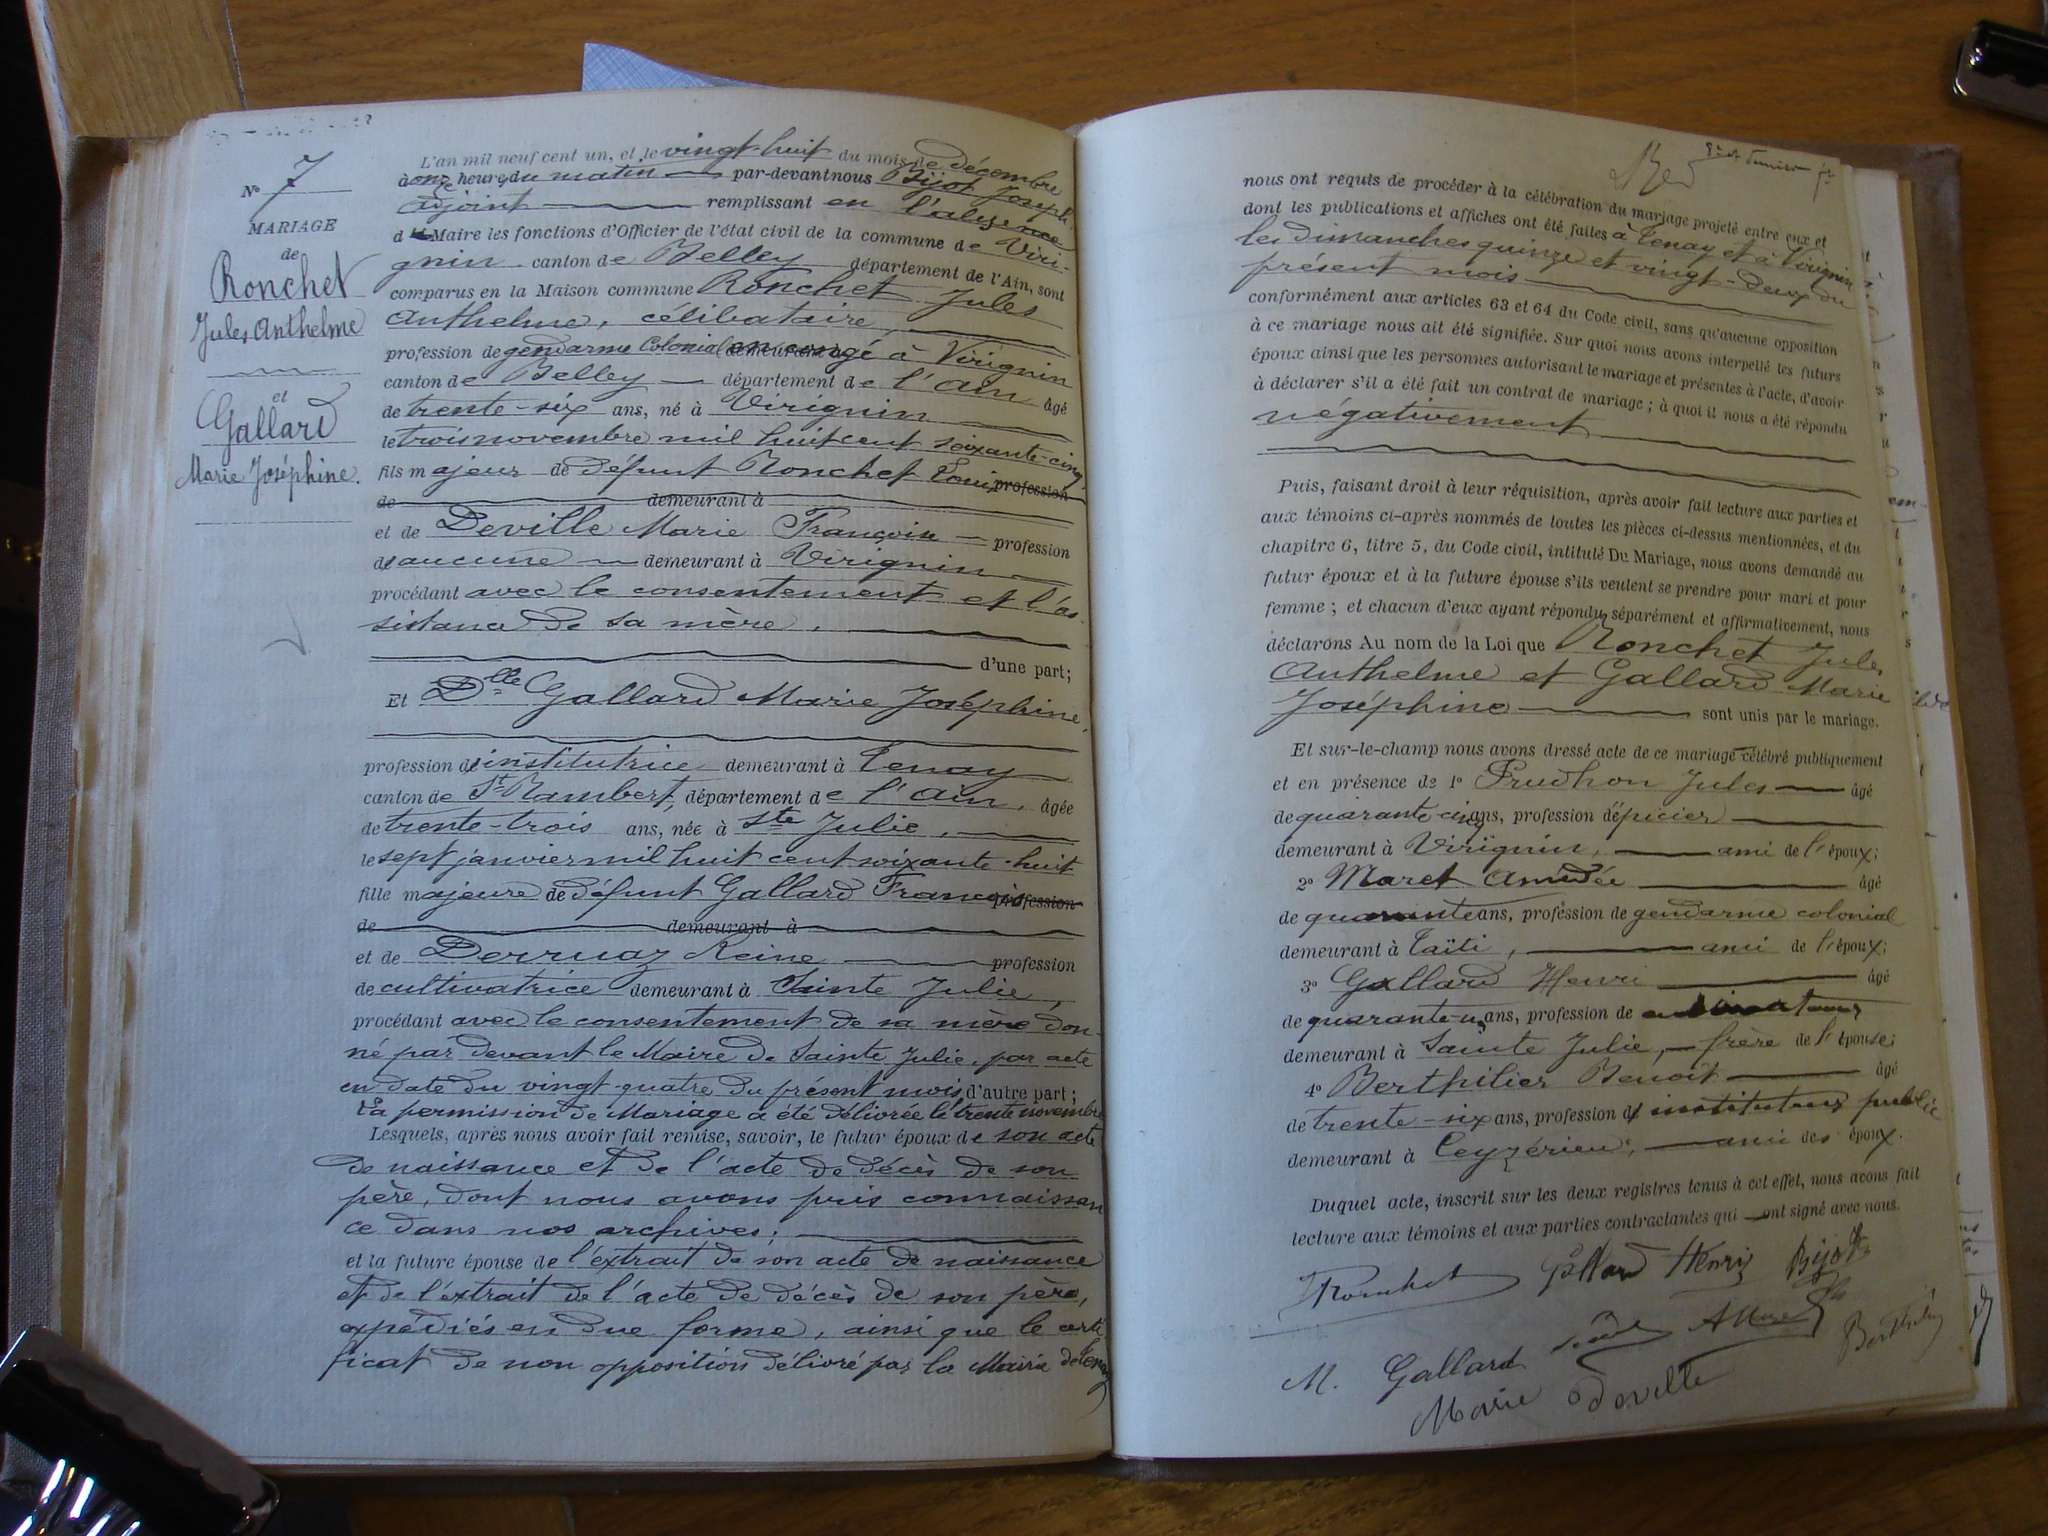 N° 7
MARIAGE
de
Ronchet
Jules Anthelme
et
Gallard
Marie Joséphine.
L'an mil neuf cent un, et le vingt-huit du mois de décembre
à onze heures du matin par-devant nous Bijot Joseph
adjoint remplissant en l'absence
d Maire les fonctions d'Officier de l'état civil de la commune de Viri-
gnin canton de Belley département de l'Ain, sont
comparus en la Maison commune Ronchet Jules
Anthelme, célibataire,
profession de gendarme Colonial demeurant en congé à Virignin
canton de Belley département de l'Ain âgé
de trente-six ans, né à Virignin
le trois novembre mil huit cent soixante-cinq
fils majeur de défunt Ronchet Louis profession
de demeurant à
et de Deville Marie Françoise profession
de aucune demeurant à Virignin
procédant avec le consentement et l'as-
sistance de sa mère,
d'une part;
Et Dlle Gallard Marie Joséphine,
profession d'institutrice demeurant à Tenay
canton de St Rambert, département de l'Ain, âgée
de trente-trois ans, née à Ste Julie,
le sept janvier mil huit cent soixante-huit
fille majeure de défunt Gallard François profession
de demeurant à
et de Derruaz Reine profession
de cultivatrice demeurant à Sainte Julie,
procédant avec le consentement de sa mère don-
né par devant le Maire de Sainte Julie, par acte
en date du vingt-quatre du présent mois, d'autre part;
La permission de Mariage a été délivrée le trente novembre
Lesquels, après nous avoir fait remise, savoir, le futur époux de son acte
de naissance et de l'acte de décès de son
père, dont nous avons pris connaissan
ce dans nos archives;
et la future épouse de l'extrait de son acte de naissance
et de l'extrait de l'acte de décès de son père,
expédiés en due forme, ainsi que le certi
ficat de non opposition délivré par la Mairie de Tenay
nous ont requis de procéder à la célébration du mariage projeté entre eux et
dont les publications et affiches ont été faites à Tenay et à Virignin
les dimanches quinze et vingt-deux du
présent mois
conformément aux articles 63 et 64 du Code civil, sans qu'aucune opposition
à ce mariage nous ait été signifiée. Sur quoi nous avons interpellé les futurs
époux ainsi que les personnes autorisant le mariage et présentes à l'acte, d'avoir
à déclarer s'il a été fait un contrat de mariage; à quoi il nous a été répondu
négativement
Puis, faisant droit à leur réquisition, après avoir fait lecture aux parties et
aux témoins ci-après nommés de toutes les pièces ci-dessus mentionnées, et du
chapitre 6, titre 5, du Code civil, intitulé Du Mariage, nous avons demandé au
futur époux et à la future épouse s'ils veulent se prendre pour mari et pour
femme; et chacun d'eux ayant répondu séparément et affirmativement, nous
déclarons Au nom de la Loi que Ronchet Jules
Anthelme et Gallard Marie
Joséphine sont unis par le mariage.
Et sur-le-champ nous avons dressé acte de ce mariage célébré publiquement
et en présence de 1° Prudhon Jules âgé
de quarante-cinq ans, profession d'épicier
demeurant à Virignin, ami de l'époux;
2° Maret Amédée âgé
de quarante ans, profession de gendarme colonial
demeurant à Taïti, ami de l'époux;
3° Gallard Henri âgé
de quarante-un ans, profession de
demeurant à Sainte Julie, frère de l'épouse;
4° Berthilier Benoît âgé
de trente-six ans, profession d'instituteur public
demeurant à Ceyzérieu, ami des époux.
Duquel acte, inscrit sur les deux registres tenus à cet effet, nous avons fait
lecture aux témoins et aux parties contractantes qui ont signé avec nous.
Ronchet Gallard Henri Bijot
M. Gallard A Maret
Marie Deville